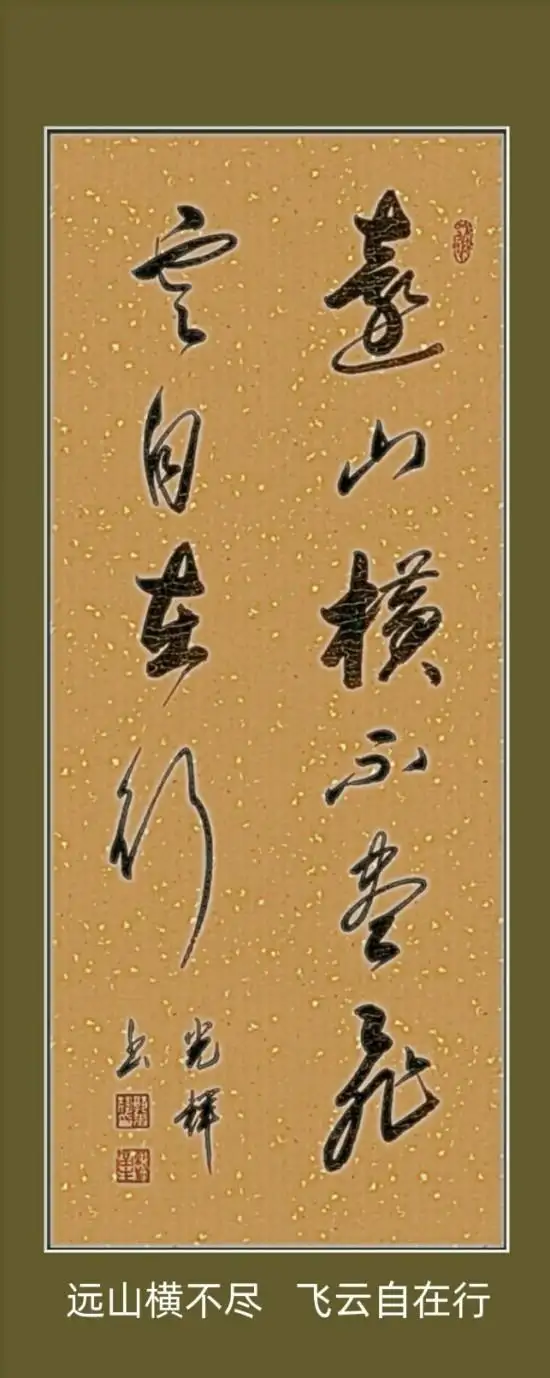 遠山橫不盡飛
雲自在行
光輝
書
远山横不尽 飞云自在行